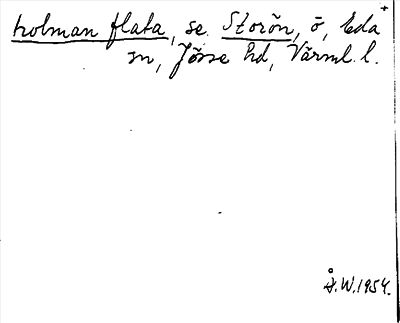 holman flata, se. Storön, ö, Eda
sn, Jösse hd, Värml. l.
Å.W.1954.